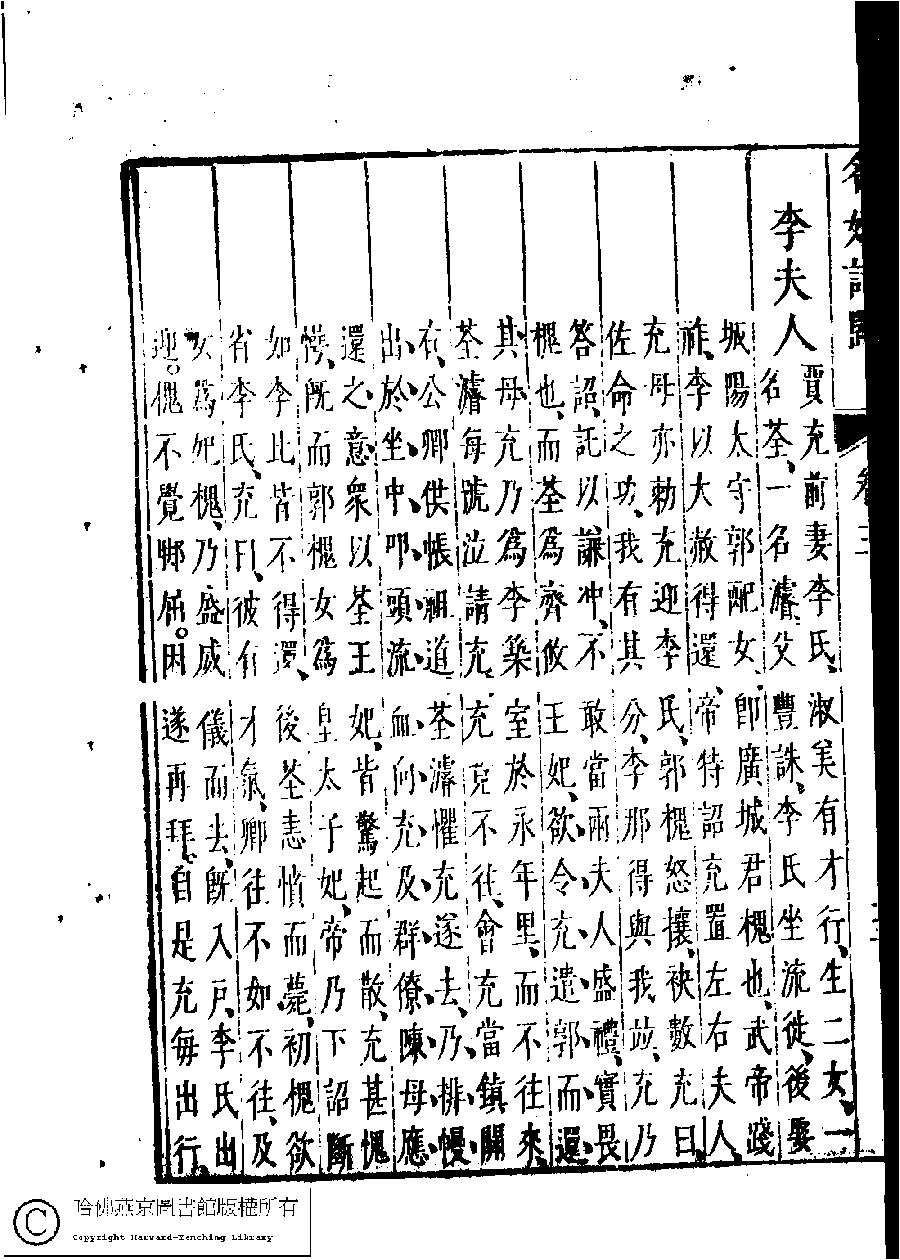 名媛詩歸 卷三
李夫人
賈充前妻李氏淑美有才行生二女一
名荃一名濬父豐誅李氏坐流徙後娶
城陽太守郭配女即廣城君槐也武帝踐
祚李以大赦得還帝特詔充置左右夫人
充母亦勅充迎李氏郭槐怒攘袂數充曰
佐命之功我有其分李那得與我竝充乃
答詔託以謙冲不敢當兩夫人盛禮實畏
槐也而荃為齊攸王妃欲令充遣郭而還
其母充乃為李築室於永年里而不往來
荃濬每號泣請充充竟不往會充當鎮關
右公卿供帳祖道荃濬懼充遂去乃排幔
出於坐中叩頭流血向充及群僚陳母應
還之意衆以荃王妃皆驚起而散充甚愧
愕既而郭槐女為皇太子妃帝乃下詔斷
如李比皆不得還後荃恚憤而薨初槐欲
省李氏充曰彼有才氣卿往不如不往及
女為妃槐乃盛威儀而去既入戶李氏出
迎槐不覺脚屈因遂再拜自是充每出行
哈佛燕京圖書館版權所有
Copyright Harvard-Yenching Library